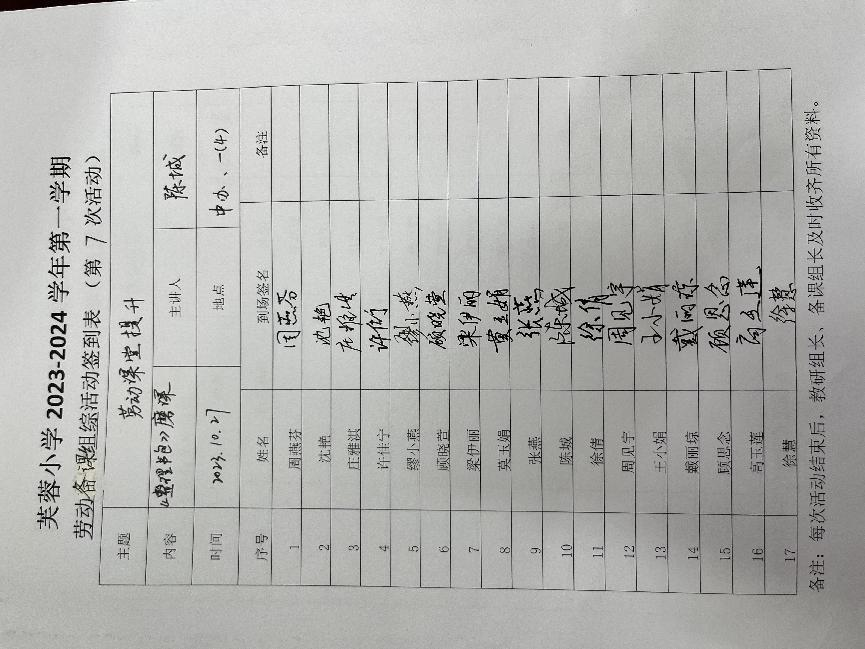 芙蓉小学 2023-2024 学年第一学期
劳动备课组综活动签到表（第 7 次活动）
主题 劳动课堂提升
内容 《整理书包》磨课 主讲人 陈城
时间 2023.10.27 地点 中办、一(4)
序号 姓名 到场签名 备注
1 周燕芬 周燕芬
2 沈艳 沈艳
3 庄雅淇 庄雅淇
4 许佳宁
5 缪小燕 缪小燕
6 顾晓萱 顾晓萱
7 梁伊丽 梁伊丽
8 莫玉娟 莫玉娟
9 张燕 张燕
10 陈城 陈城
11 徐倩 徐倩
12 周见宇 周见宇
13 王小娟 王小娟
14 戴丽琼 戴丽琼
15 顾思念 顾思念
16 高玉莲 高玉莲
17 徐慧 徐慧
备注：每次活动结束后，教研组长、备课组长及时收齐所有资料。